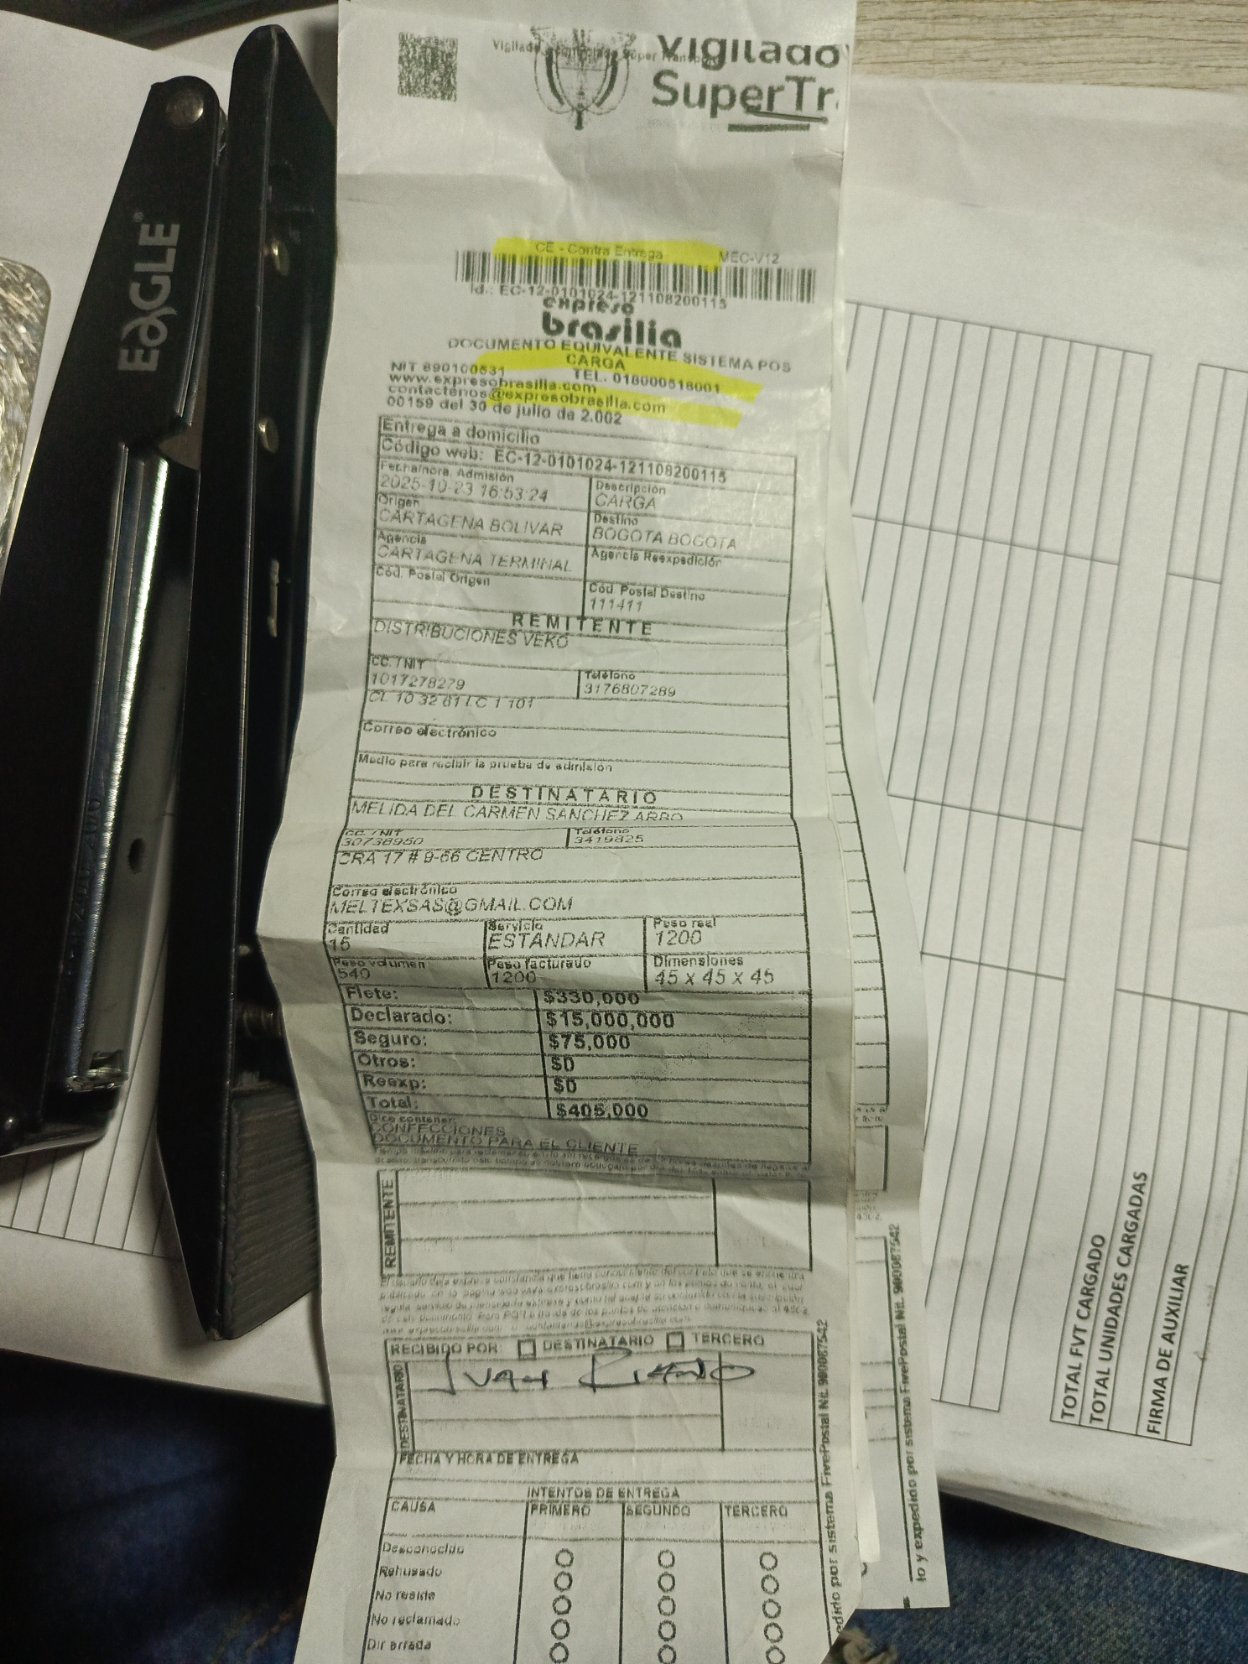 Vigilado
SuperTr
CE - Contra Entrega
MEC-V12
Id.: EC-12-0101024-121108200115
expreso
brasilia
DOCUMENTO EQUIVALENTE SISTEMA POS
CARGA
NIT 890100531 TEL. 018000518001
www.expresobrasilia.com
contactenos@expresobrasilia.com
00159 del 30 de julio de 2.002
Entrega a domicilio
Código web: EC-12-0101024-121108200115
Fecha/hora. Admisión
2025-10-23 16:53:24
Descripción
CARGA
Origen
CARTAGENA BOLIVAR
Destino
BOGOTA BOGOTA
Agencia
CARTAGENA TERMINAL
Agencia Reexpedición
Cód. Postal Origen
Cód. Postal Destino
111411
REMITENTE
DISTRIBUCIONES VEKO
CC. / NIT
1017278279
Teléfono
3176807289
CL 10 32 61 LC 1 101
Correo electrónico
Medio para recibir la prueba de admisión
DESTINATARIO
MELIDA DEL CARMEN SANCHEZ ARBO
CC. / NIT
30738950
Teléfono
3419825
CRA 17 # 9-66 CENTRO
Correo electrónico
MELTEXSAS@GMAIL.COM
Cantidad
15
Servicio
ESTANDAR
Peso real
1200
Peso volumen
540
Peso facturado
1200
Dimensiones
45 x 45 x 45
Flete: $330,000
Declarado: $15,000,000
Seguro: $75,000
Otros: $0
Reexp: $0
Total: $405,000
Dice contener
CONFECCIONES
DOCUMENTO PARA EL CLIENTE
REMITENTE
RECIBIDO POR: DESTINATARIO TERCERO
DESTINATARIO
IVAN RIAÑO
FECHA Y HORA DE ENTREGA
INTENTOS DE ENTREGA
CAUSA PRIMERO SEGUNDO TERCERO
Desconocido
Rehusado
No reside
No reclamado
Dir errada
edido por sistema FivePostal Nit. 900087542
lo y expedido por sistema FivePostal Nit. 900087542
EAGLE
TOTAL FVT CARGADO
TOTAL UNIDADES CARGADAS
FIRMA DE AUXILIAR